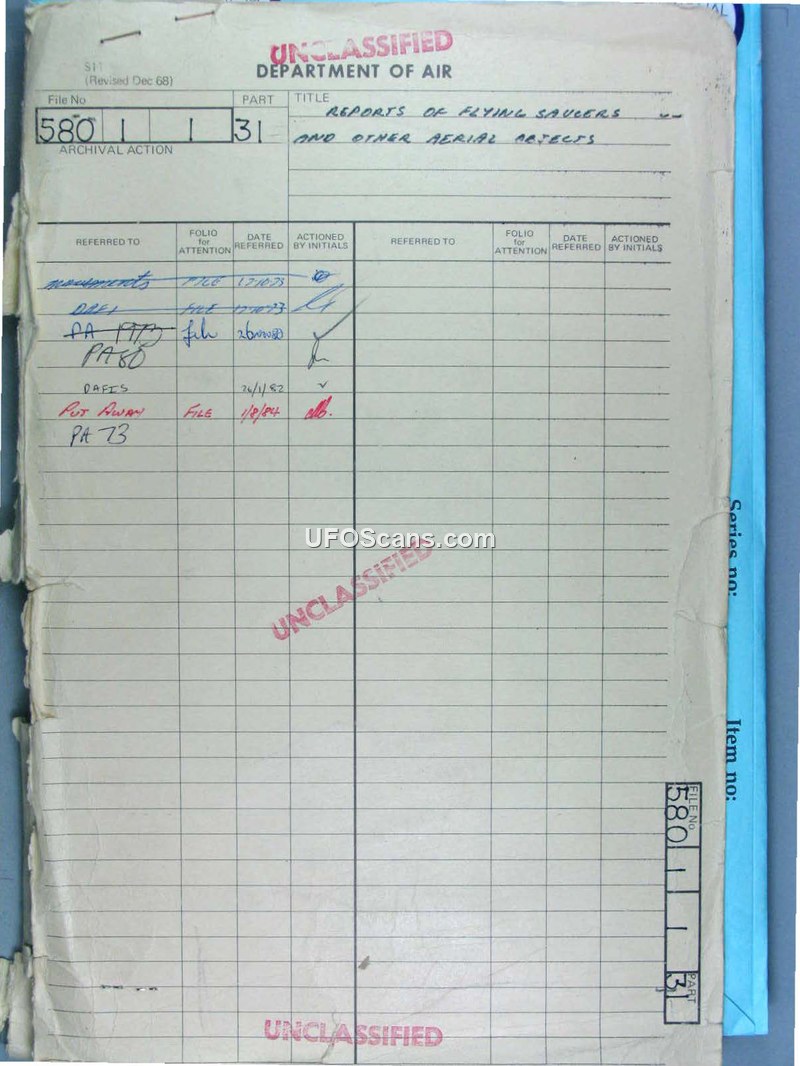 UNCLASSIFIED
S11
(Revised Dec 68)
DEPARTMENT OF AIR
File No PART TITLE
580 1 1 31 REPORTS OF FLYING SAUCERS
AND OTHER AERIAL OBJECTS
ARCHIVAL ACTION
REFERRED TO FOLIO for ATTENTION DATE REFERRED ACTIONED BY INITIALS REFERRED TO FOLIO for ATTENTION DATE REFERRED ACTIONED BY INITIALS
movements FILE 17.10.73
DAFI FILE 17.10.73
PA 1973 file
PA 80
DAFIS 26/1/82
PUT AWAY FILE 1/8/84
PA 73
UFOScans.com
UNCLASSIFIED
Series no:
Item no:
FILE No 580 1 1 PART 31
UNCLASSIFIED